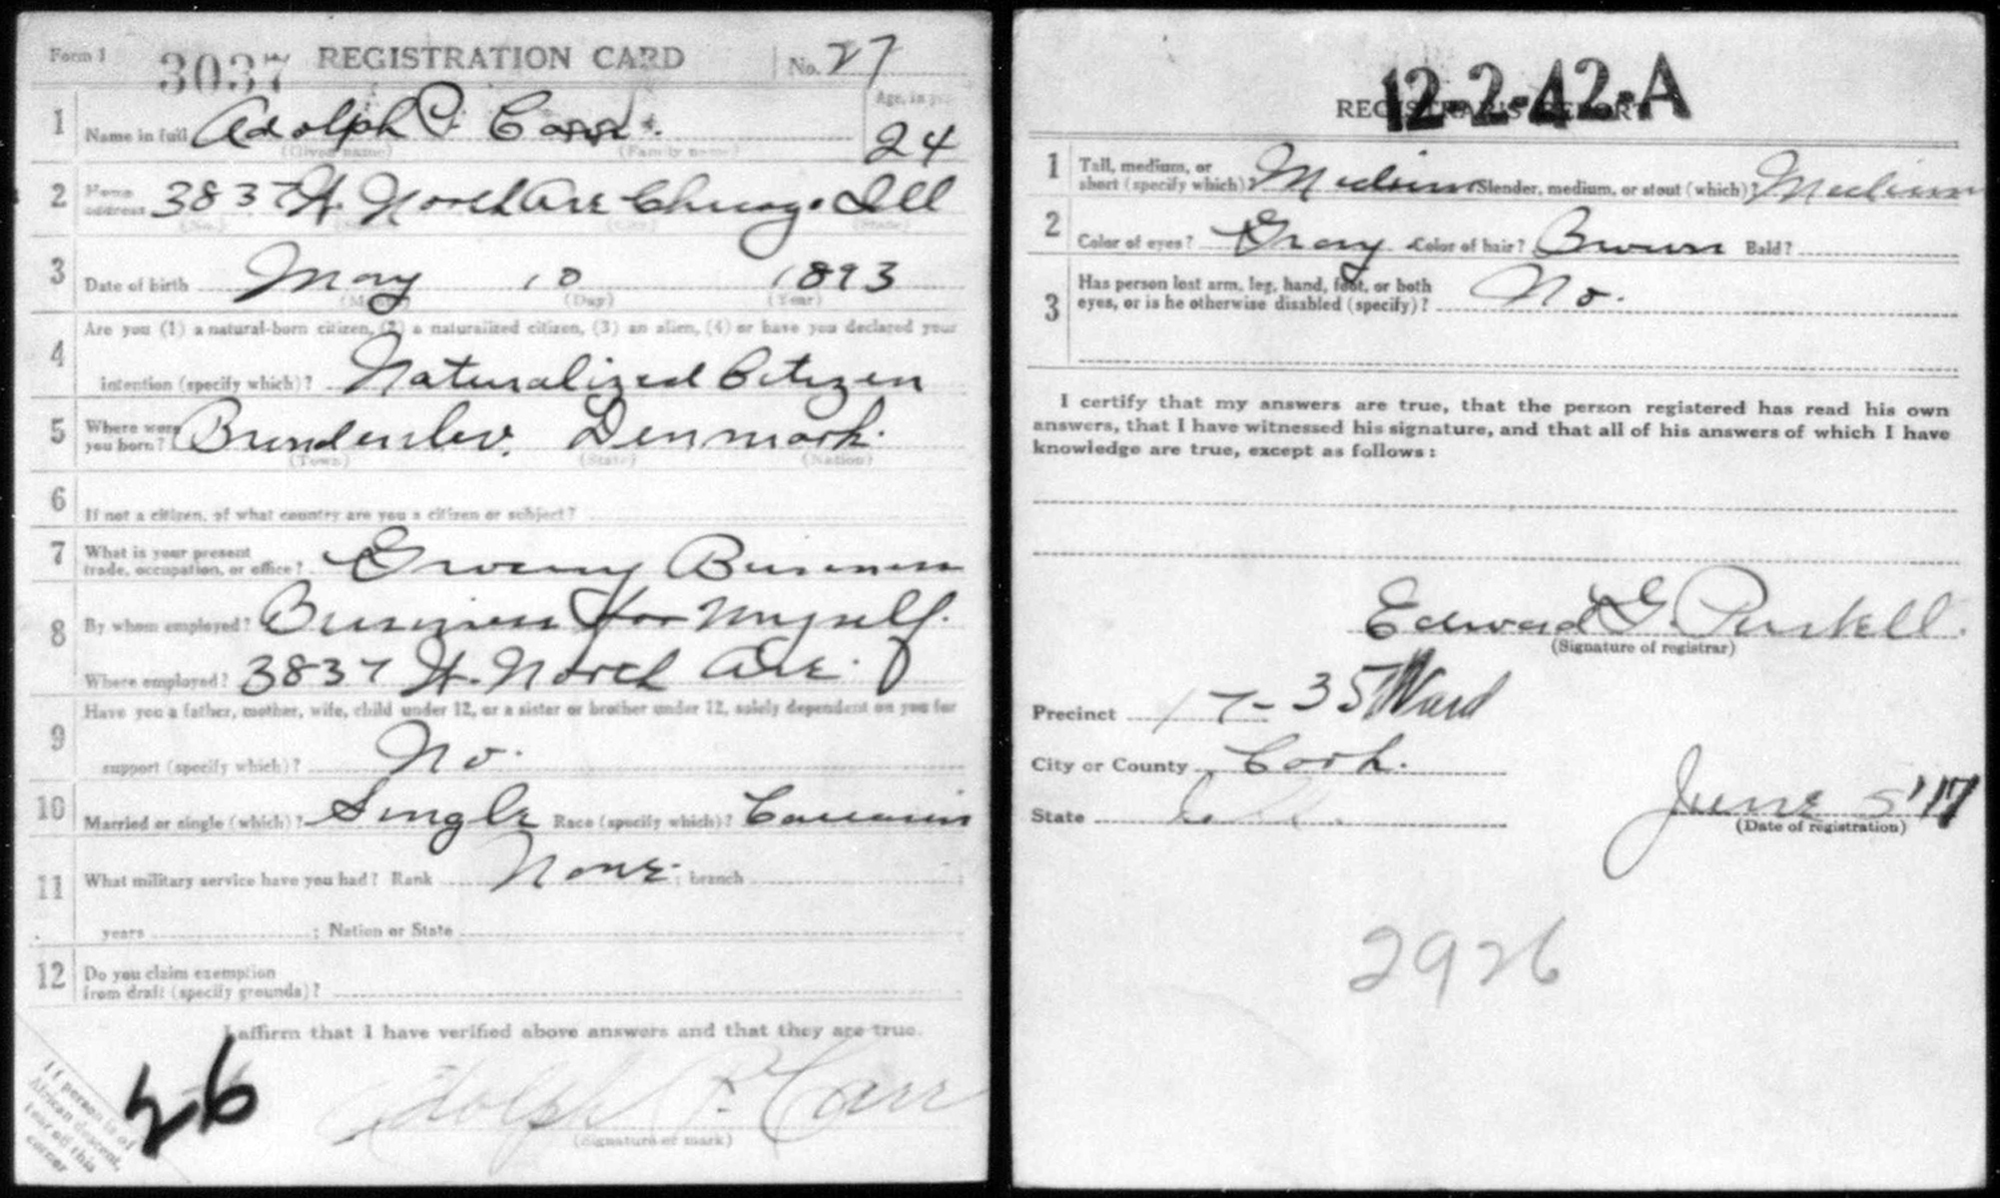 Form 1 3037 REGISTRATION CARD No. 27
1 Name in full Adolph P. Carr. Age, in yrs
(Given name) (Family name) 24
2 Home address 3837 W. North Ave Chicago Ill
(No.) (Street) (City) (State)
3 Date of birth May 10 1893
(Month) (Day) (Year)
4 Are you (1) a natural-born citizen, (2) a naturalized citizen, (3) an alien, (4) or have you declared your
intention (specify which)? Naturalized Citizen
5 Where were
you born? Denmark.
(Town) (State) (Nation)
6 If not a citizen, of what country are you a citizen or subject?
7 What is your present
trade, occupation, or office? Grocery Business
8 By whom employed? Business for Myself.
Where employed? 3837 W. North Ave.
9 Have you a father, mother, wife, child under 12, or a sister or brother under 12, solely dependent on you for
support (specify which)? No.
10 Married or single (which)? Single Race (specify which)? Caucasian
11 What military service have you had? Rank None; branch ;
years ; Nation or State
12 Do you claim exemption
from draft (specify grounds)?
I affirm that I have verified above answers and that they are true.
Adolph P. Carr
(Signature or mark)
If person is of
African descent,
tear off this
corner
26
12-2-42-A
REGISTRAR'S REPORT
1 Tall, medium, or
short (specify which)? Medium Slender, medium, or stout (which)? Medium
2 Color of eyes? Gray Color of hair? Brown Bald?
3 Has person lost arm, leg, hand, foot, or both
eyes, or is he otherwise disabled (specify)? No.
I certify that my answers are true, that the person registered has read his own
answers, that I have witnessed his signature, and that all of his answers of which I have
knowledge are true, except as follows:
Edward G.
(Signature of registrar)
Precinct 17-35 Ward
City or County Cook.
State Ill.
June 5 '17
(Date of registration)
2926